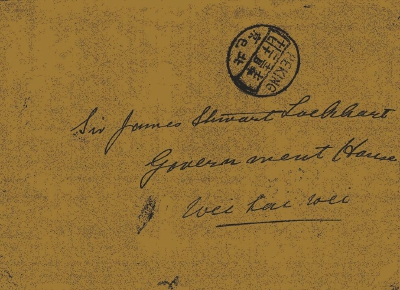 PEKING
北
Sir James Stewart Lockhart
Government House
Wei hai wei